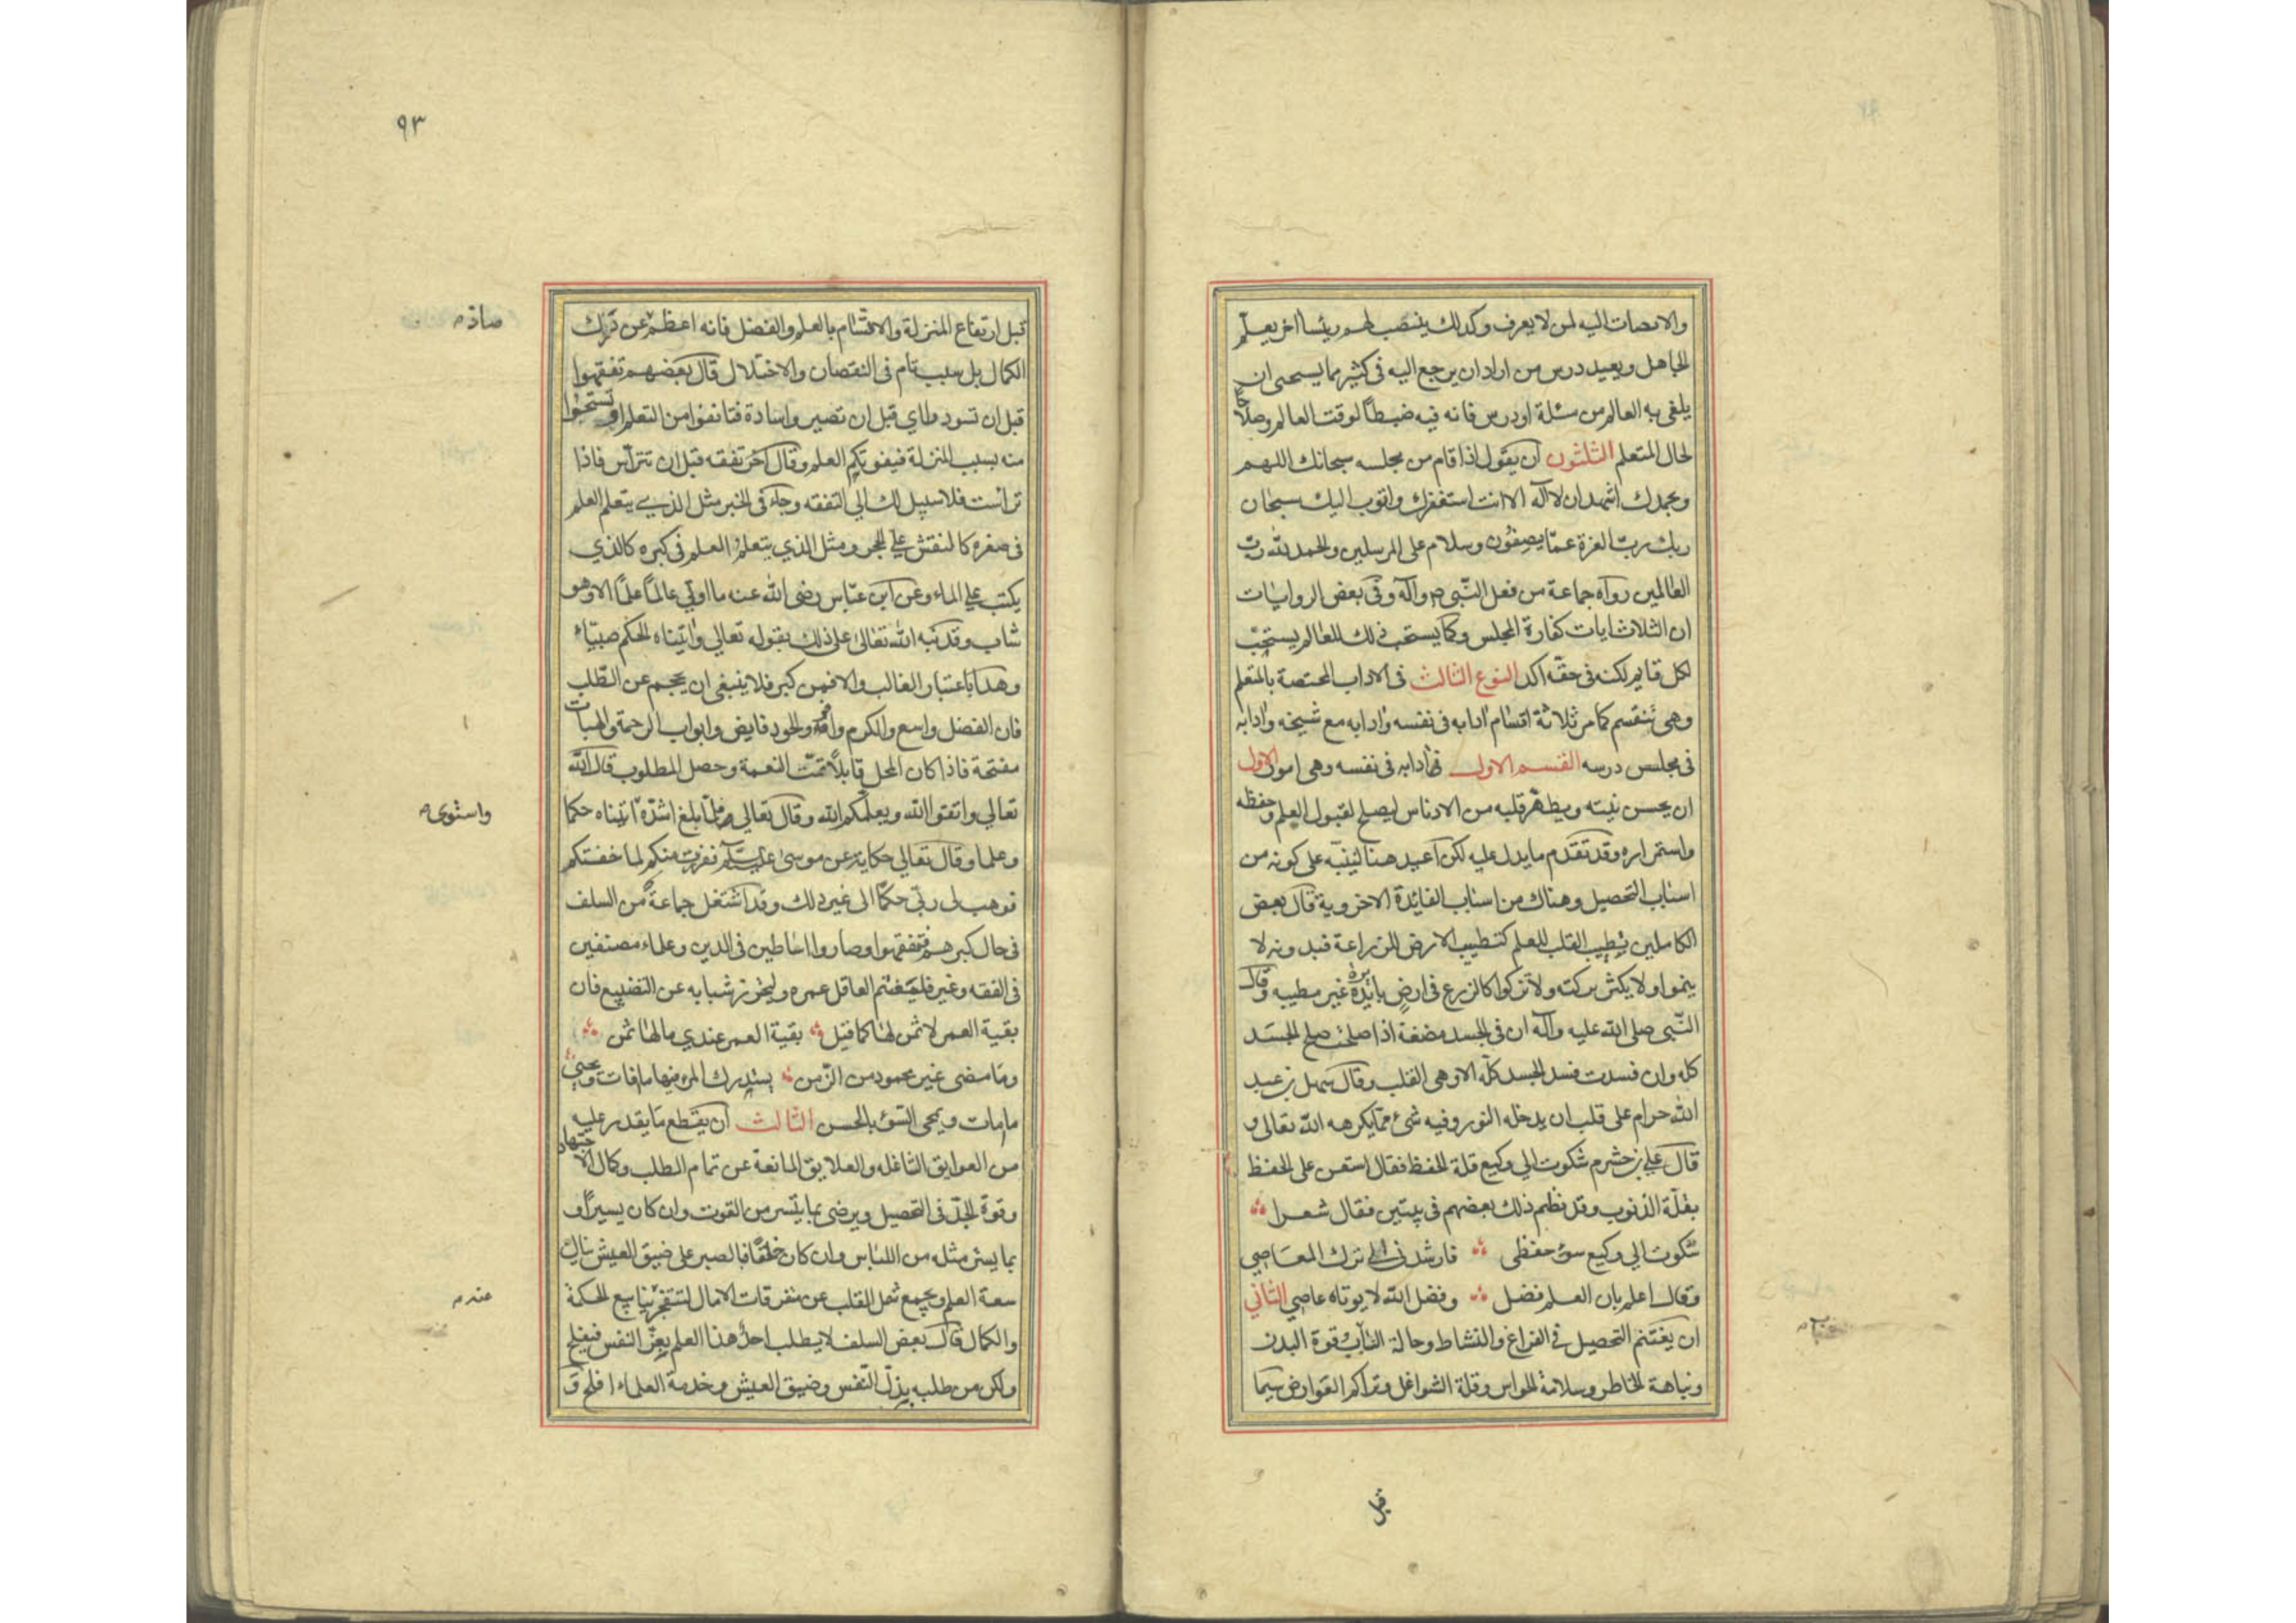 والانصات اليه لمن لا يعرف وكذلك ينتصب لهم رئيسا اخر يعلّم
الجاهل ويعيد درس من اراد ان يرجع اليه فى كثير مما يستحى ان
يلقى به العالم من مسئلة او درس فانه فيه ضبطاً لوقت العالم وصلاحا
لحال المتعلم الثلثون ان يقول اذا قام من مجلسه سبحانك اللهم
وبحمدك اشهد ان لا اله الا انت استغفرك واتوب اليك سبحان
ربك ربّ العزة عمّا يصفون وسلام على المرسلين والحمد لله ربّ
العالمين رواه جماعة من فعل النّبى ص وآله وفى بعض الروايات
ان الثلاث ايات كفارة المجلس وكما يستحب ذلك للعالم يستحبّ
لكل قايم لكنه فى حقه اكد النوع الثالث فى الاداب المختصة بالمتعلم
وهى تنقسم كما مر ثلاثة اقسام ادابه فى نفسه وادابه مع شيخه وادابه
فى مجلس درسه القسم الاول فى ادابه فى نفسه وهى امور الاول
ان يحسن نيته ويطهّر قلبه من الادناس ليصلح لقبول العلم وحفظه
واستمراره وقد تقدم ما يدل عليه لكن اعيد هنا لينبّه على كونه من
اسباب التحصيل وهناك من اسباب الفائدة الاخروية قال بعض
الكاملين تطييب القلب للعلم كتطييب الارض للزراعة فبدونه لا
ينموا ولا يكثر بركته ولا تزكوا كالزرع فى ارض بائرة غير مطيبه وقال
النّبى صلى الله عليه وآله ان فى الجسد مضغة اذا صلحت صلح الجسد
كله وان فسدت فسد الجسد كله الا وهى القلب وقال سهل بن عبد
الله حرام على قلب ان يدخله النور وفيه شئ ممّا يكرهه الله تعالى و
قال علي بن خشرم شكوت الي وكيع قلة الحفظ فقال استعن على الحفظ
بقلّة الذنوب وقد نظم ذلك بعضهم فى بيتين فقال شعرا
شكوت الي وكيع سوء حفظى فارشدنى الي ترك المعاصي
وقال اعلم بان العلم فضل وفضل الله لا يوتاه عاصي الثاني
ان يغتنم التحصيل في الفراغ والنشاط وحالة الشباب وقوة البدن
ونباهة الخاطر وسلامة الحواس وقلة الشواغل وتراكم العوارض سيما
قبل
٩٣
قبل ارتفاع المنزلة والاتسام بالعلم والفضل فانه اعظم عن درك
الكمال بل سبب تام فى النقصان والاختلال قال بعضهم تفقهوا
قبل ان تسودوا اي قبل ان تصيروا سادة فتانفوا من التعلم او تستحيوا
منه بسبب المنزلة فيفوتكم العلم وقال آخر تفقه قبل ان تترأس فاذا
ترأست فلا سبيل لك الي التفقه وجاء فى الخبر مثل الذي يتعلم العلم
فى صغره كالنقش علي الحجر ومثل الذي يتعلم العلم فى كبره كالذي
يكتب علي الماء وعن ابن عبّاس رضى الله عنه ما اوتي عالماً علماً الا وهو
شاب وقد نبه الله تعالى على ذلك بقوله تعالي واتيناه الحكم صبيّاً
وهذا باعتبار الغالب والا فمن كبر فلا ينبغى ان يحجم عن الطّلب
فان الفضل واسع والكرم وافر والجود فايض وابواب الرحمة والهبات
مفتحة فاذا كان المحل قابلاً تمّت النعمة وحصل المطلوب قال الله
تعالي واتقوا الله ويعلّمكم الله وقال تعالي ولمّا بلغ اشدّه اتيناه حكما
وعلما وقال تعالي حكاية عن موسى عليه السّلام ففررت منكم لما خفتكم
فوهب لى ربّي حكماً الى غير ذلك وقد اشتغل جماعة من السلف
فى حال كبرهم فتفقهوا وصاروا اساطين فى الدين وعلماء مصنفين
فى الفقه وغيره فليغتنم العاقل عمره وليحرز شبابه عن التضييع فان
بقية العمر لا ثمن لها كما قيل بقية العمر عندي ما لها ثمن
وما مضى غير محمود من الزّمن يستدرك المرء فيها ما فات ويحيى
ما مات ويمحى السّوء بالحسن الثالث ان يقطع ما يقدر عليه
من العوايق الشاغله والعلايق المانعة عن تمام الطلب وكمال الاجتهاد
وقوة الجدّ فى التحصيل ويرضى بما يتيسر من القوت وان كان يسيراً و
بما يستر مثله من اللباس وان كان خلقاً فبالصبر على ضيق العيش ينال
سعة العلم ويجمع شمل القلب عن متفرقات الامال لتتفجر ينابيع الحكمة
والكمال قال بعض السلف لا يطلب احدٌ هذا العلم بعزّ النفس فيفلح
ولكن من طلبه بذلّ النّفس وضيق العيش وخدمة العلماء افلح و
واستوى